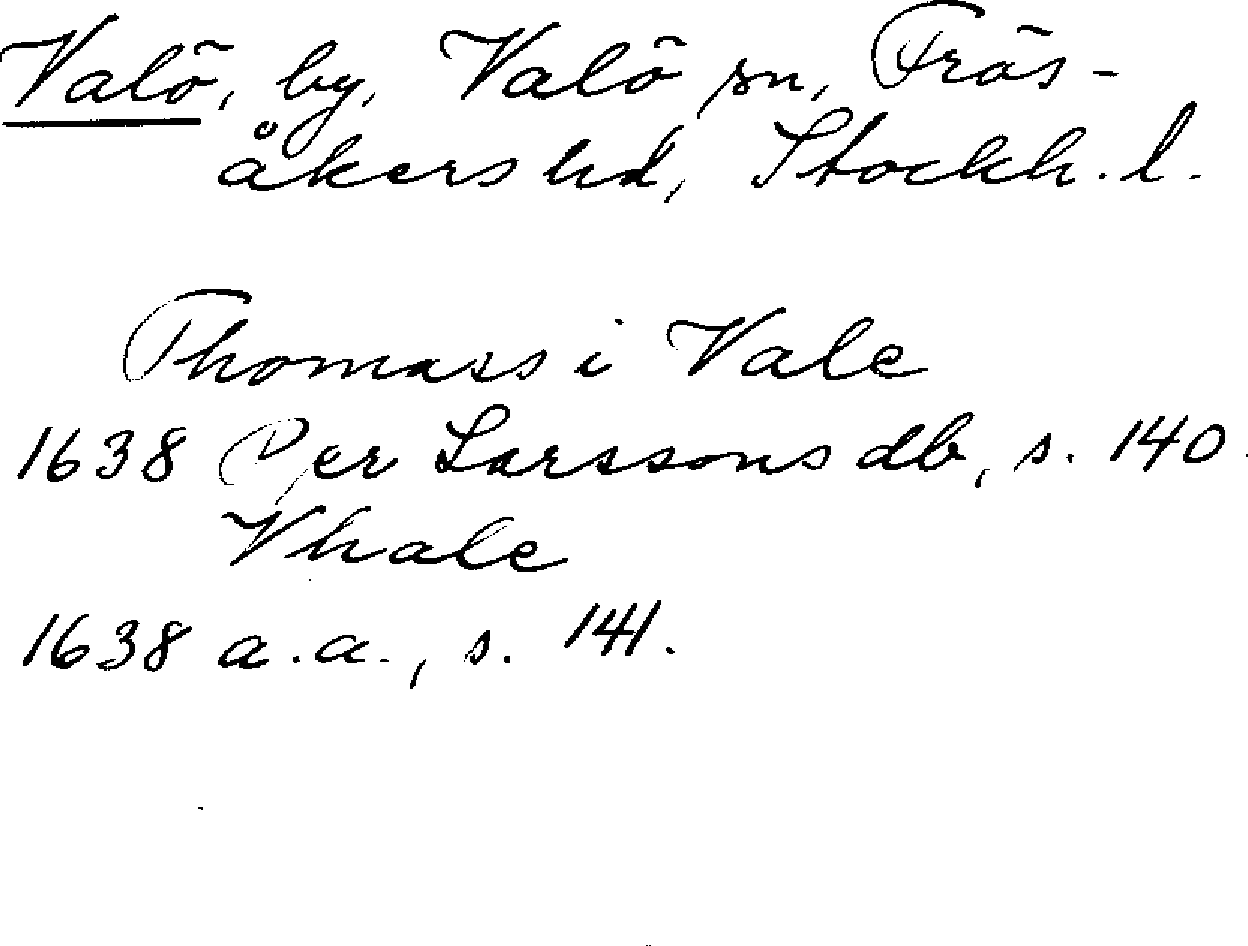 Valö, by, Valö sn, Frös-
åkers hd, Stockh. l.
Thomass i Vale
1638 Per Larssons db, s. 140.
Vhale
1638 a.a., s. 141.